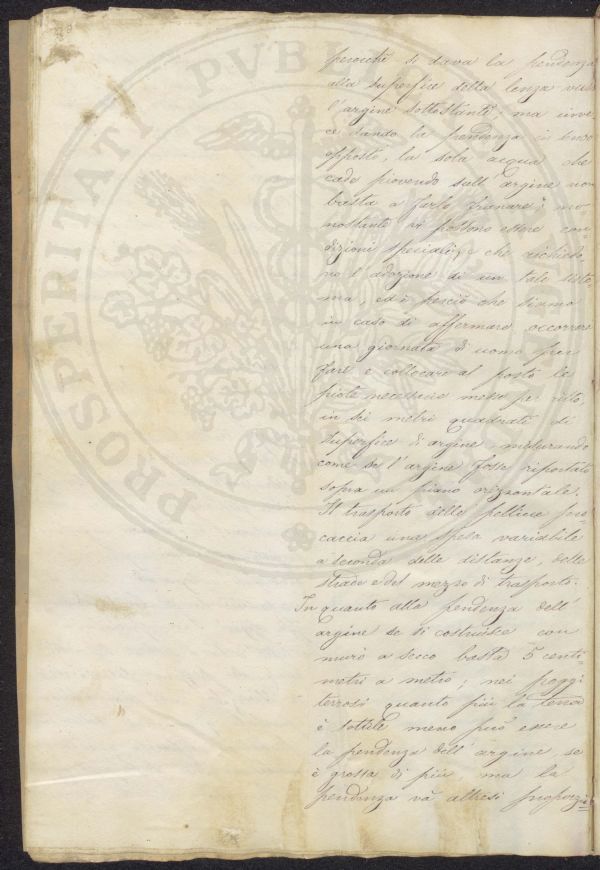 perocchè si dava la pendenza
alla superfice della lenza verso
l'argine sottostante; ma inve
ce dando la pendenza in senso
opposto, la sola acqua che
cade piovendo sull'argine non
basta a farlo franare; no
nostante vi possono essere con
dizioni speciali, che richiedo
no l'adozione di un tale siste
ma, ed è perciò che siamo
in caso di affermare occorrere
una giornata d'uomo per
fare e collocare al posto le
piote necessarie messe per ritto,
in sei metri quadrati di
superfice d'argine, misurando
come se l'argine fosse riportato
sopra un piano orizzontale.
Il trasporto delle pellicce pro
caccia una spesa variabile
a seconda delle distanze, delle
strade e del mezzo di trasporto.
In quanto alla pendenza dell'
argine se si costruisce con
muro a secco basta 5 centi=
metri a metro; nei poggi
terrosi quanto più la terra
è sottile meno può essere
la pendenza dell'argine, se
è grossa di più, ma la
pendenza và altresì proporzio=
PROSPERITATI PVBLICAE